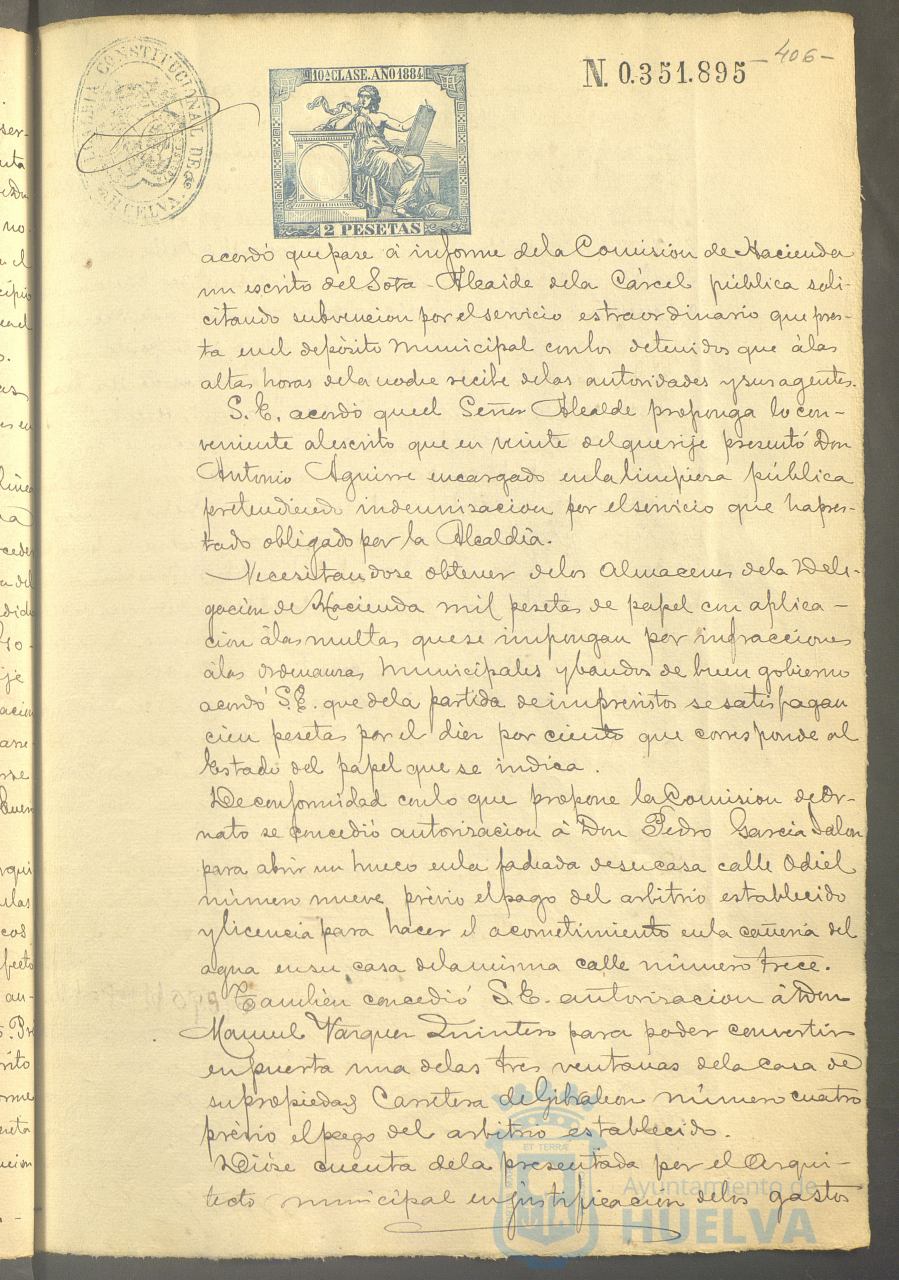 - 406 -
N. 0.351.895
ALCALDIA CONSTITUCIONAL DE HUELVA
10ª CLASE. AÑO 1884
2 PESETAS
acordó que pase á informe dela Comision de Hacienda
un escrito del Sota-Alcaide dela Cárcel pública soli-
citando subvencion por el servicio estraordinario que pres-
ta en el depósito municipal con los detenidos que álas
altas horas dela noche recibe delas autoridades y sus agentes.
S. E. acordó que el Señor Alcalde proponga lo con-
veniente al escrito que en veinte del que rije presentó Don
Antonio Aguirre encargado en la limpieza pública
pretendiendo indemnizacion por el servicio que ha pres-
tado obligado por la Alcaldía.
Necesitandose obtener delos Almacenes dela Dele-
gacion de Hacienda mil pesetas de papel con aplica-
cion álas multas que se impongan por infracciones
álas ordenanzas municipales y bandos de buen gobierno
acordó S. E. que dela partida de imprevistos se satisfagan
cien pesetas por el diez por ciento que corresponde al
Estado del papel que se indica.
De conformidad con lo que propone la Comision de Or-
nato se concedió autorizacion á Don Pedro Garcia Jalon
para abrir un hueco en la fachada de su casa calle Odiel
número nueve, prévio el pago del arbitrio establecido
y licencia para hacer el acometimiento en la cañeria del
agua en su casa dela misma calle número trece.
Tambien concedió S. E. autorizacion á Don
Manuel Vazquez Quintero para poder convertir
en puerta una delas tres ventanas dela casa de
su propiedad Carretera de Gibraleon número cuatro
prévio el pago del arbitrio establecido.
Dióse cuenta dela presentada por el Arqui-
tecto municipal en justificacion delos gastos
Ayuntamiento de
HUELVA